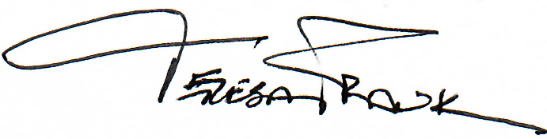 Teresa Frank